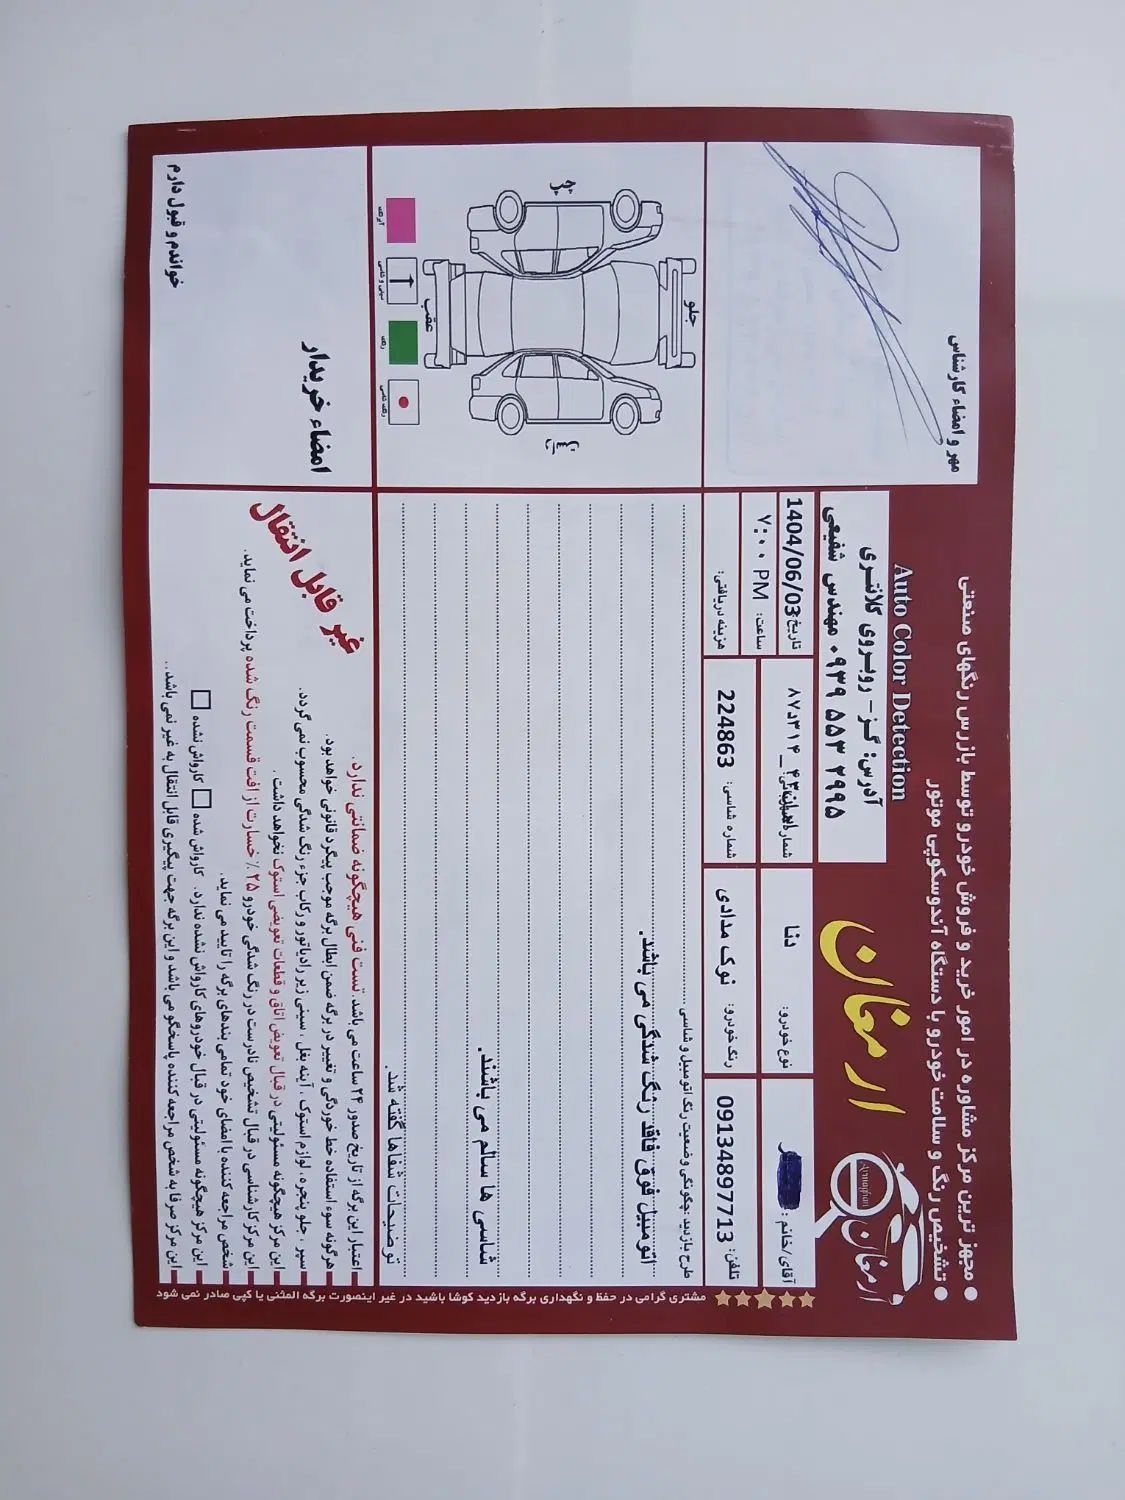 ● مجهز ترین مرکز مشاوره در امور خرید و فروش خودرو توسط بازرس رنگهای صنعتی
● تشخیص رنگ و سلامت خودرو با دستگاه آندوسکوپی موتور
ارمغان
Armaghan
ارمغان
Auto Color Detection
آدرس: گز - روبروی کلانتری
۰۹۳۹ ۵۵۳ ۲۹۹۵ مهندس شفیعی
مهر و امضاء کارشناس
آقای/خانم:
نوع خودرو: دنا
تاریخ: 1404/06/03
تلفن: 09134897713
رنگ خودرو: نوک مدادی
شماره شاسی: 224863
ساعت: ۷:۰۰ PM
هزینه دریافتی:
مشتری گرامی در حفظ و نگهداری برگه بازدید کوشا باشید در غیر اینصورت برگه المثنی یا کپی صادر نمی شود
طرح بازدید چگونگی وضعیت رنگ اتومبیل و شاسی
اتومبیل فوق فاقد رنگ شدگی می باشد.
شاسی ها سالم می باشند.
توضیحات شفاها گفته شد.
جلو
چپ
راست
عقب
رنگ
اعتبار این برگه از تاریخ صدور ۲۴ ساعت می باشد تست فنی هیچگونه ضمانتی ندارد.
هرگونه سوء استفاده خط خوردگی و تغییر در برگه ضمن ابطال برگه موجب پیگرد قانونی خواهد بود.
سپر، جلو پنجره، لوازم استوک، آینه بغل، سینی زیر رادیاتور و رکاب جزء رنگ شدگی محسوب نمی گردد.
این مرکز هیچگونه مسئولیتی در قبال تعویض اتاق و قطعات تعویضی استوک نخواهد داشت.
این مرکز کارشناسی در قبال تشخیص نادرست در رنگ شدگی خودرو ۲۵٪ خسارت از افت قسمت رنگ شده پرداخت می نماید.
شخص مراجعه کننده با امضای خود تمامی بندهای برگه را تایید می نماید.
این مرکز هیچگونه مسئولیتی در قبال خودروهای کارواش نشده ندارد. کارواش شده □ کارواش نشده □
این مرکز صرفا به شخص مراجعه کننده پاسخگو می باشد و این برگه جهت پیگیری قابل انتقال به غیر نمی باشد...
غیر قابل انتقال
امضاء خریدار
خواندم و قبول دارم